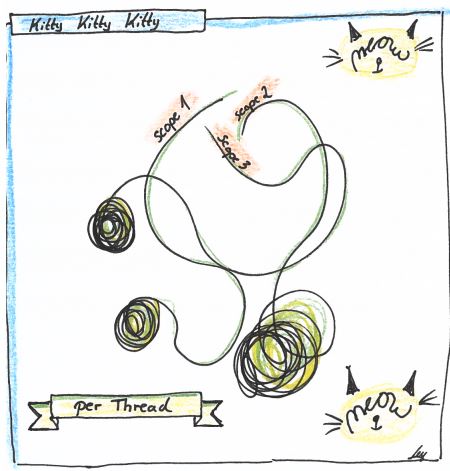 Kitty Kitty Kitty
meow
1
scope 1
scope 2
scope 3
per Thread
meow
1